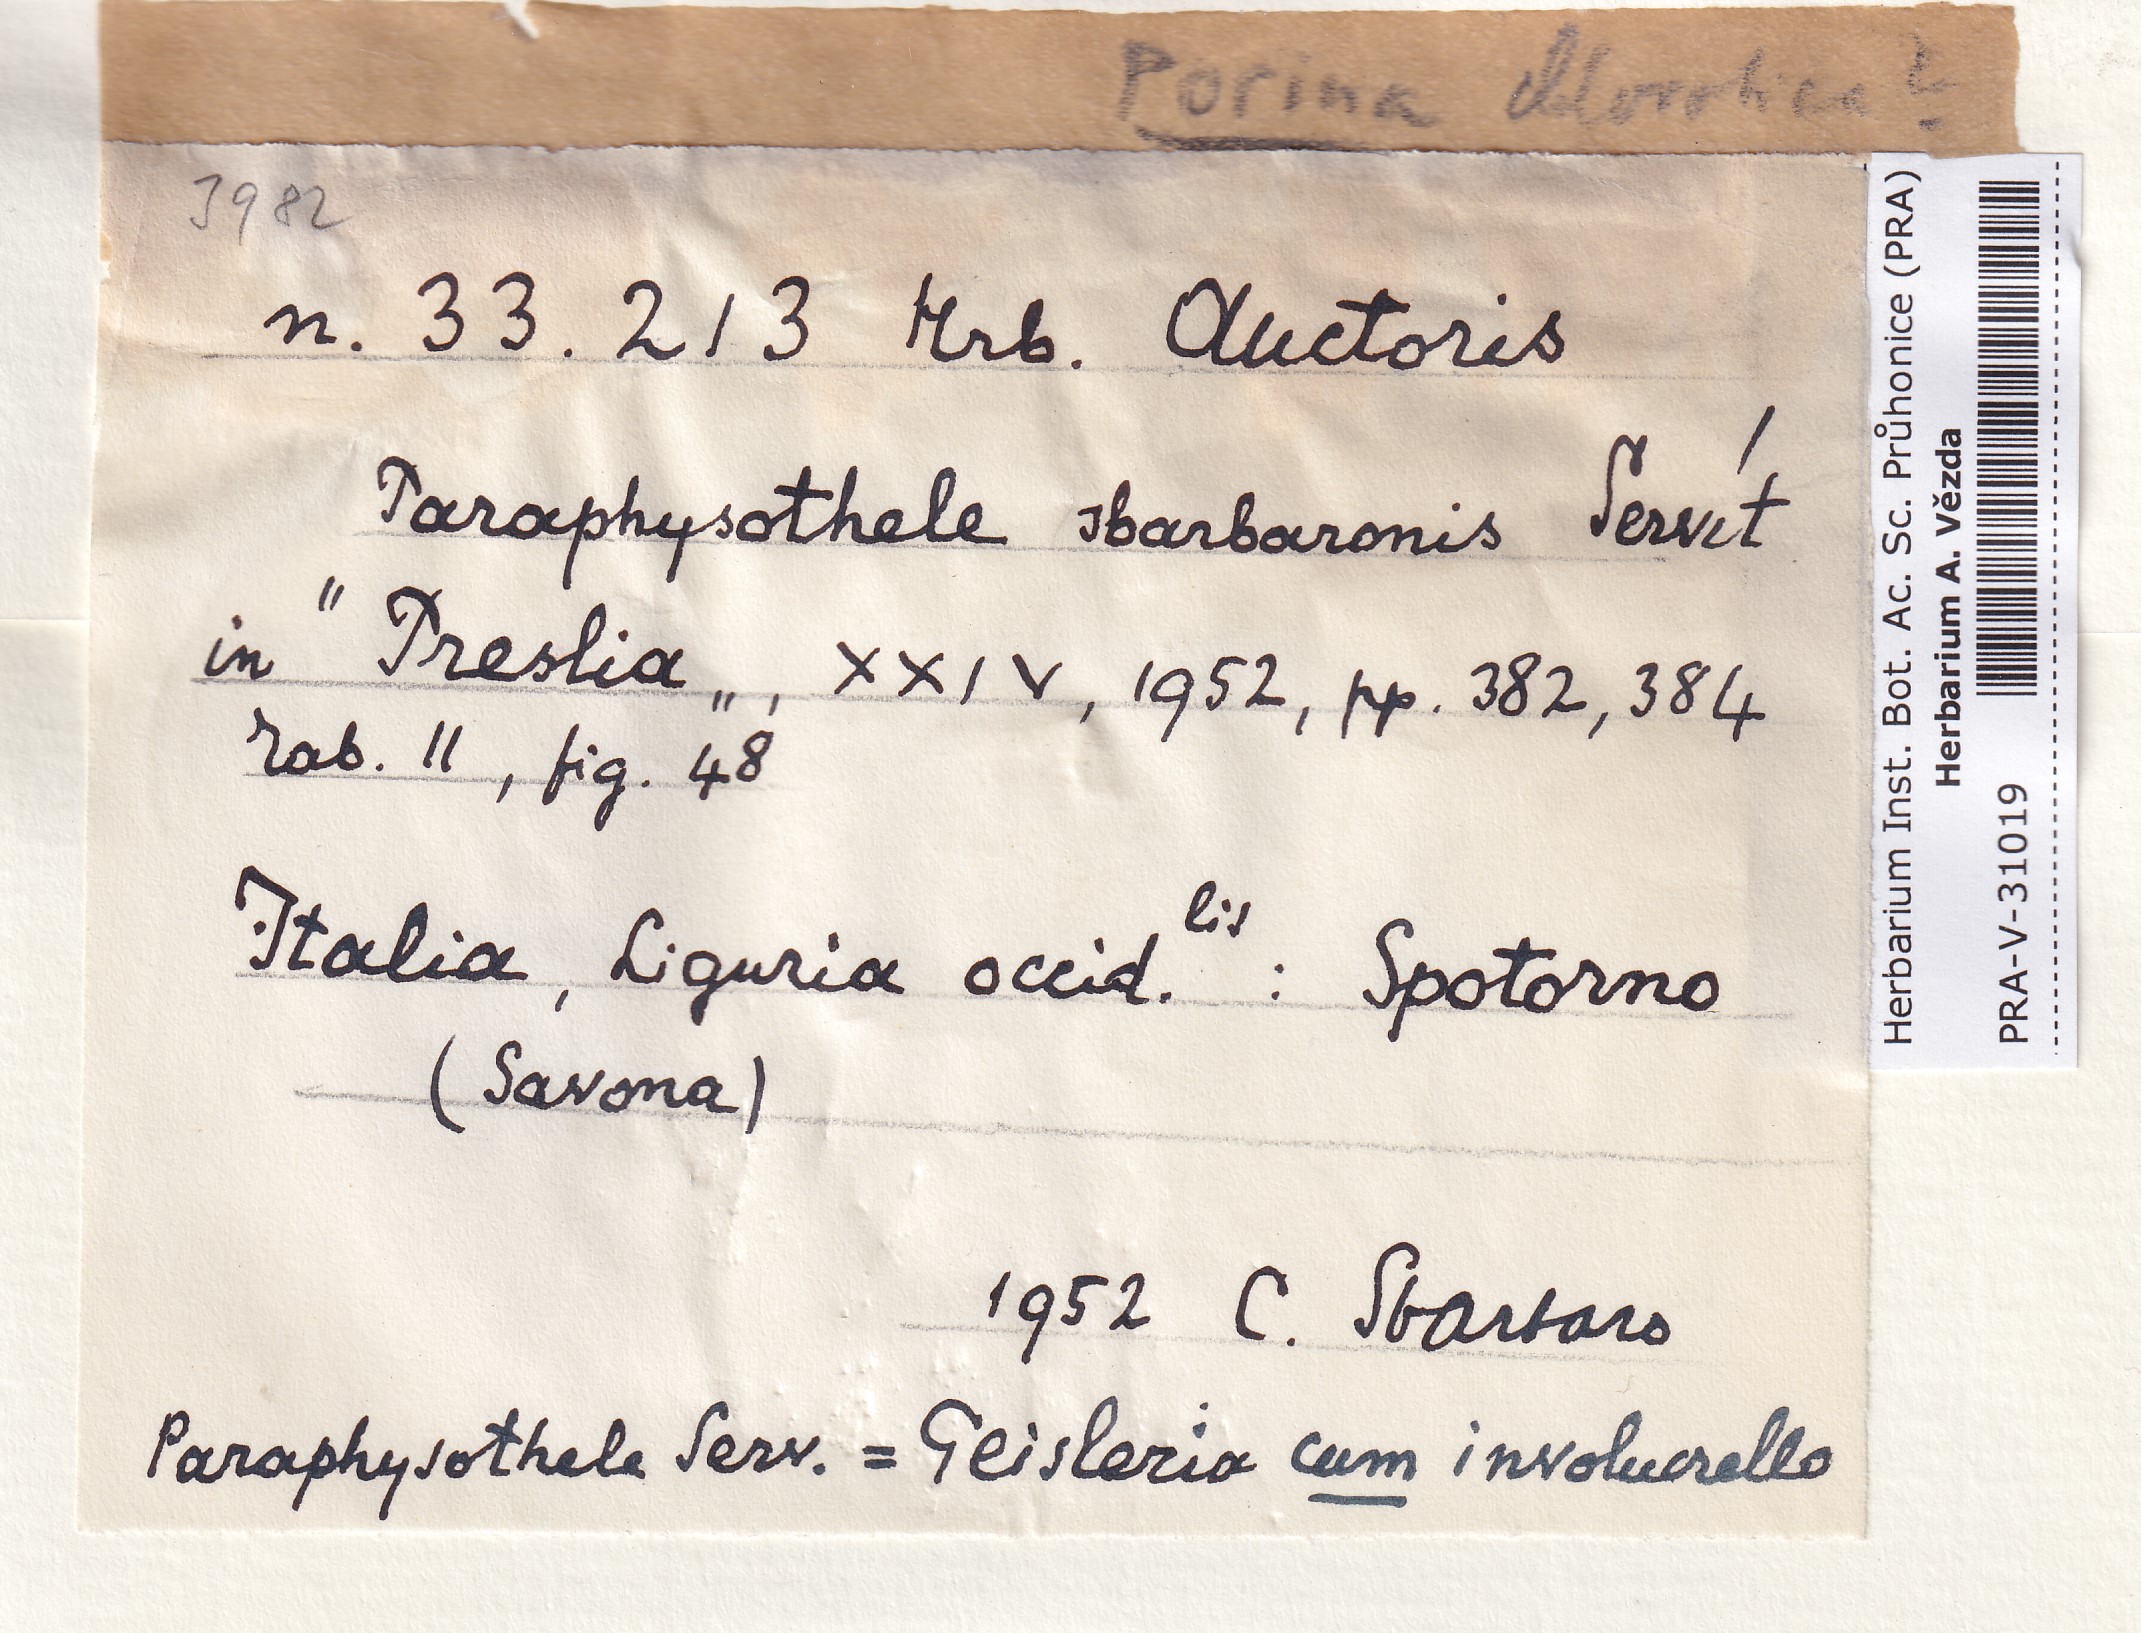 Porina chlorotica?
3982
n. 33.213 Hrb. Auctoris
Paraphysothele sbarbaronis Servít
in "Preslia„, XXIV, 1952, pp. 382, 384
Tab. II, fig. 48
Italia, Liguria occid.lis : Spotorno
(Savona)
1952 C. Sbarbaro
Paraphysothele Serv. = Geisleria cum involucrello
Herbarium Inst. Bot. Ac. Sc. Průhonice (PRA)
Herbarium A. Vězda
PRA-V-31019